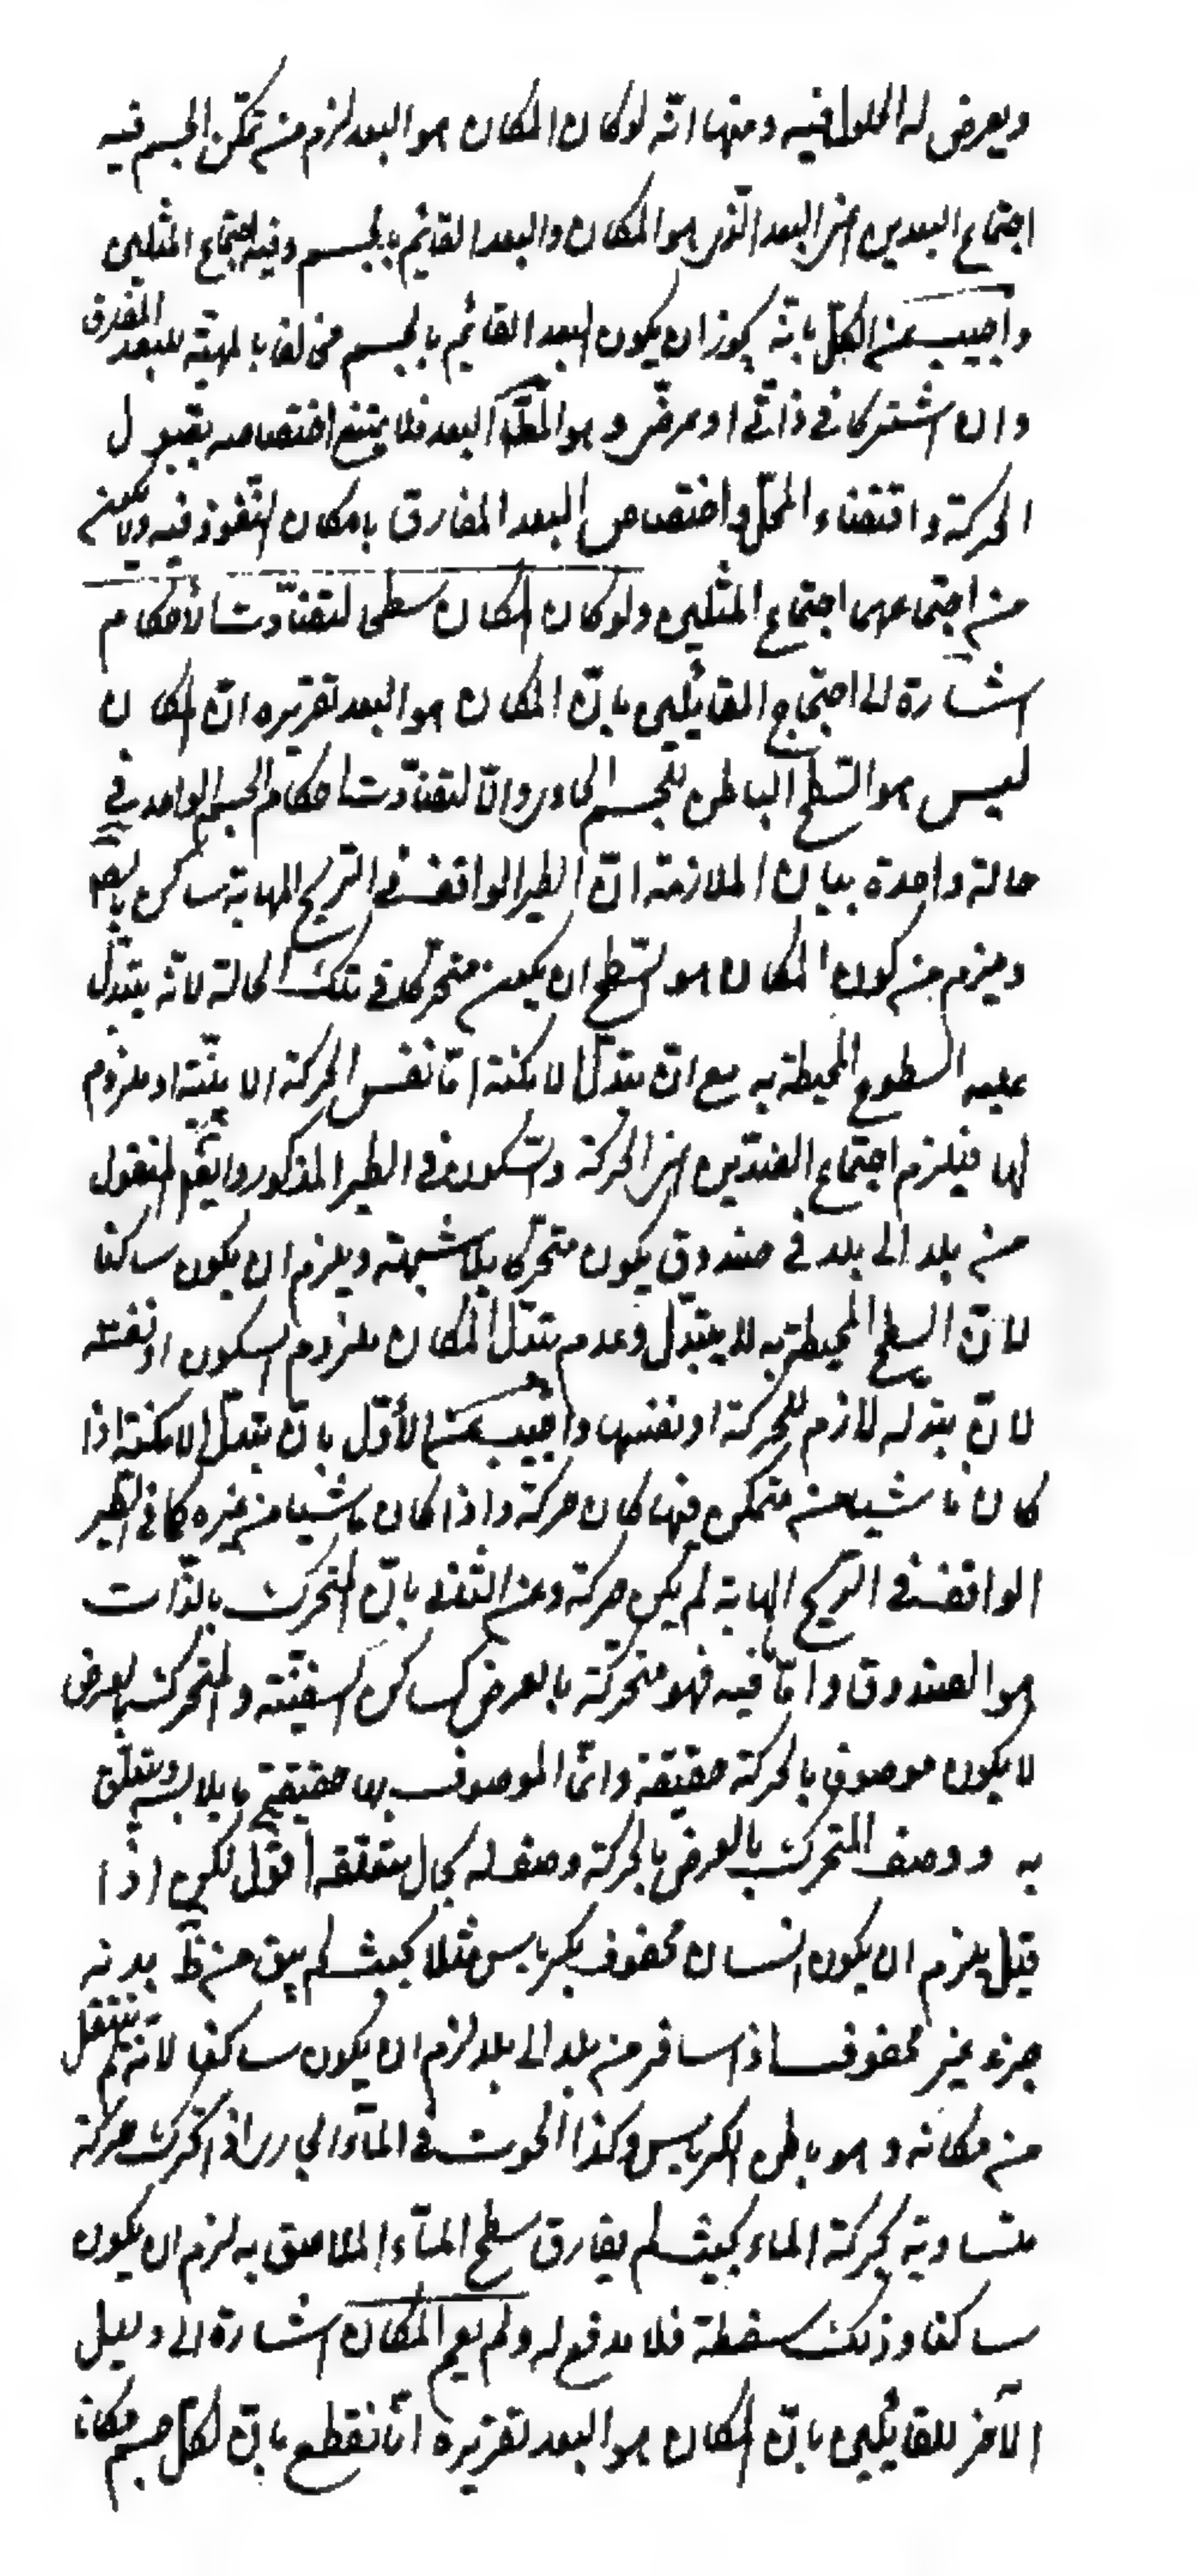 ويعرض له الحلول فيه ومنها انّه لو كان المكان هو البعد لزم من تمكّن الجسم فيه
اجتماع البعدين اعنى البعد الّذى هو المكان والبعد القائم بالجسم وفيه اجتماع المثلين
واجيب عن الكلّ بانّه يجوز ان يكون البعد القائم بالجسم مخالفا بالمهيّة للبعد المفارق
وان اشتركا فى ذاتىّ او عرضىّ و هو المط البعد فلا يمتنع اختصاصه بقبول
الحركة واقتضاء المحلّ واختصاص البعد المفارق بامكان النّفوذ فيه ولا يكون
من اجتماعهما اجتماع المثلين ولو كان المكان سطحا لتضادّت الأحكام
اشارة الى احتجاج القائلين بانّ المكان هو البعد تقريره انّ المكان
ليس هو السّطح الباطن للجسم الحاوى والّا لتضادّت احكام الجسم الواحد فى
حالة واحدة بيان الملازمة انّ الطير الواقف فى الرّيح الهابّة ساكن
ويلزم من كون المكان هو السّطح ان يكون متحرّكا فى تلك الحالة لانّه يتبدّل
عليه السطوح المحيطة به مع انّ تبدّل الامكنة امّا نفس الحركة الاينيّة او ملزوم
لها فيلزم اجتماع الضدّين اعنى الحركة والسّكون فى الطير المذكور وايضا المنقول
من بلد الى بلد فى صندوق يكون متحرّكا بلا شبهة ويلزم ان يكون ساكنا
لانّ السطح المحيط به لا يتبدّل وعدم تبدّل المكان ملزوم السكون او نفسه
لانّ تبدّله لازم للحركة او نفسها واجيب عن الأوّل بانّ تبدّل الامكنة اذا
كان ناشيا من متمكن فيها كان حركة واذا كان ناشيا من غيره كما فى الطّير
الواقف فى الرّيح الهابّة لم يكن حركة وعن الثّانى بانّ المتحرّك بالذّات
هو الصندوق وامّا ما فيه فهو متحرّك بالعرض كساكن السفينة والمتحرّك بالعرض
لا يكون موصوفا بالحركة حقيقة وانّما الموصوف بها حقيقة ما يلابسه ويتعلّق
به و وصف المتحرّك بالعرض بالحركة وصف له بحال متعلّقه اقول لكن اذا
قيل يلزم ان يكون انسان محفوف بكرباس مثلا بحيث لم يبق من ظ بدنه
جزء غير محفوف اذا سافر من بلد الى بلد لزم ان يكون ساكنا لانّه لم ينتقل
من مكانه و هو باطن الكرباس وكذا الحوت فى الماء الجارى اذا تحرّك حركة
متساوية لحركة الماء بحيث لم يفارق سطح الماء الملاصق به لزم ان يكون
ساكنا وذلك سفسطة فلا مدفع له ولم يعم المكان اشارة الى دليل
الآخر للقائلين بانّ المكان هو البعد تقريره انّا نقطع بانّ لكلّ جسم مكانا